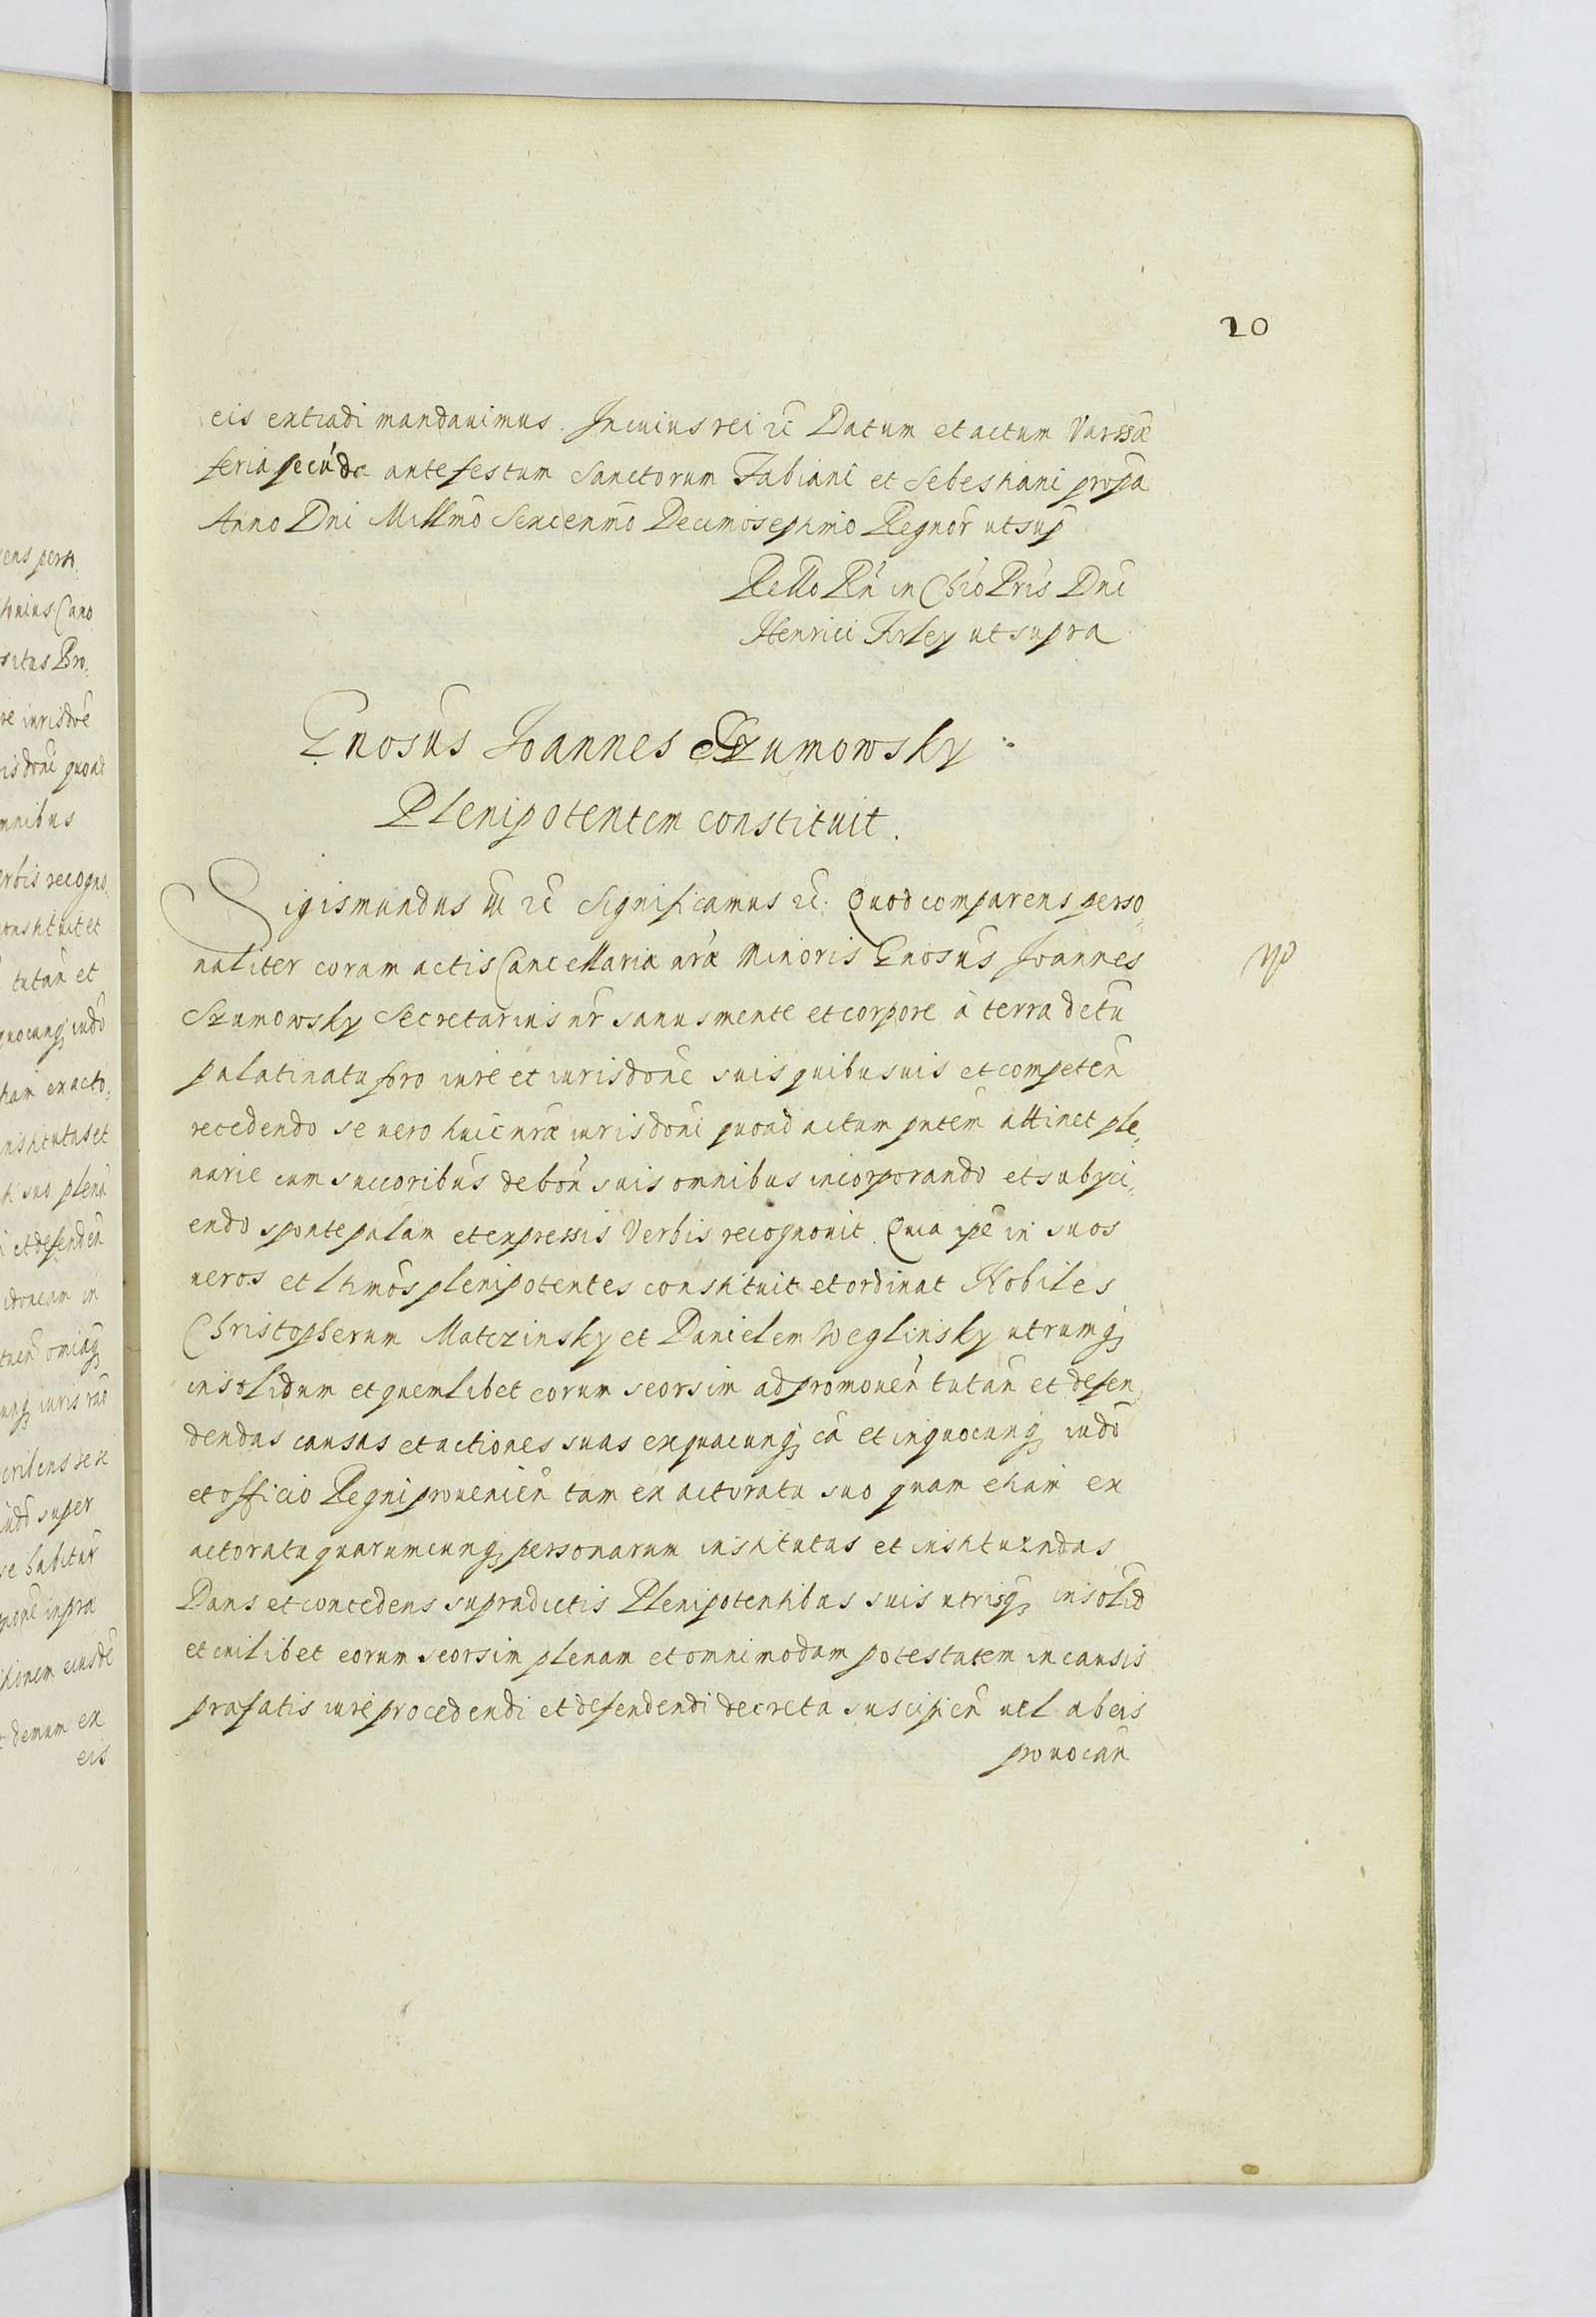 20
eis extradi mandauimus. In cuius rei &c̃ Datum et actum Varssae
feria secũda ante festum Sanctorum Fabiani et Sebestiani proxa
Anno Dni Millmo Sexcenmo Decimoseptimo Regnor ut sup
Rello Rñ in Chro Pris Dni
Henrici Firley ut supra
Gnosus Joannes Szumowsky
Plenipotentem constituit.
Sigismundus III &c̃ Significamus &c̃. Quod comparens perso,
naliter coram actis Cancellariae nrae Minoris Gnosus Joannes
Szumowsky Secretarius nr sanus mente et corpore à terra detu
palatinatu foro iure et iurisdone suis quibusuis et competeñ
recedendo se uero huic nrae iurisdoni quoad actum pñtem attinet ple,
narie cum succoribus de boñ suis omnibus incorporando et subyci,
endo sponte palam et expressis Verbis recognouit. Quia ipe in suos
ueros et lttimos plenipotentes constituit et ordinat Nobiles
Christopherum Matczinsky et Danielem Weglinsky utrumq
insolidum et quemlibet eorum seorsim ad promoueñ tutañ et defen,
dendas causas et actiones suas ex quacunq cã et in quocunq iudo
et officio Regni prouenieñ tam ex actoratu suo quam etiam ex
actoratu quarumcunq personarum institutas et instituendas
Dans et concedens supradictis Plenipotentibus suis utrisq insolid
et cuilibet eorum seorsim plenam et omnimodam potestatem in causis
praefatis iure procedendi et defendendi decreta suscipieñ uel ab eis
prouocañ